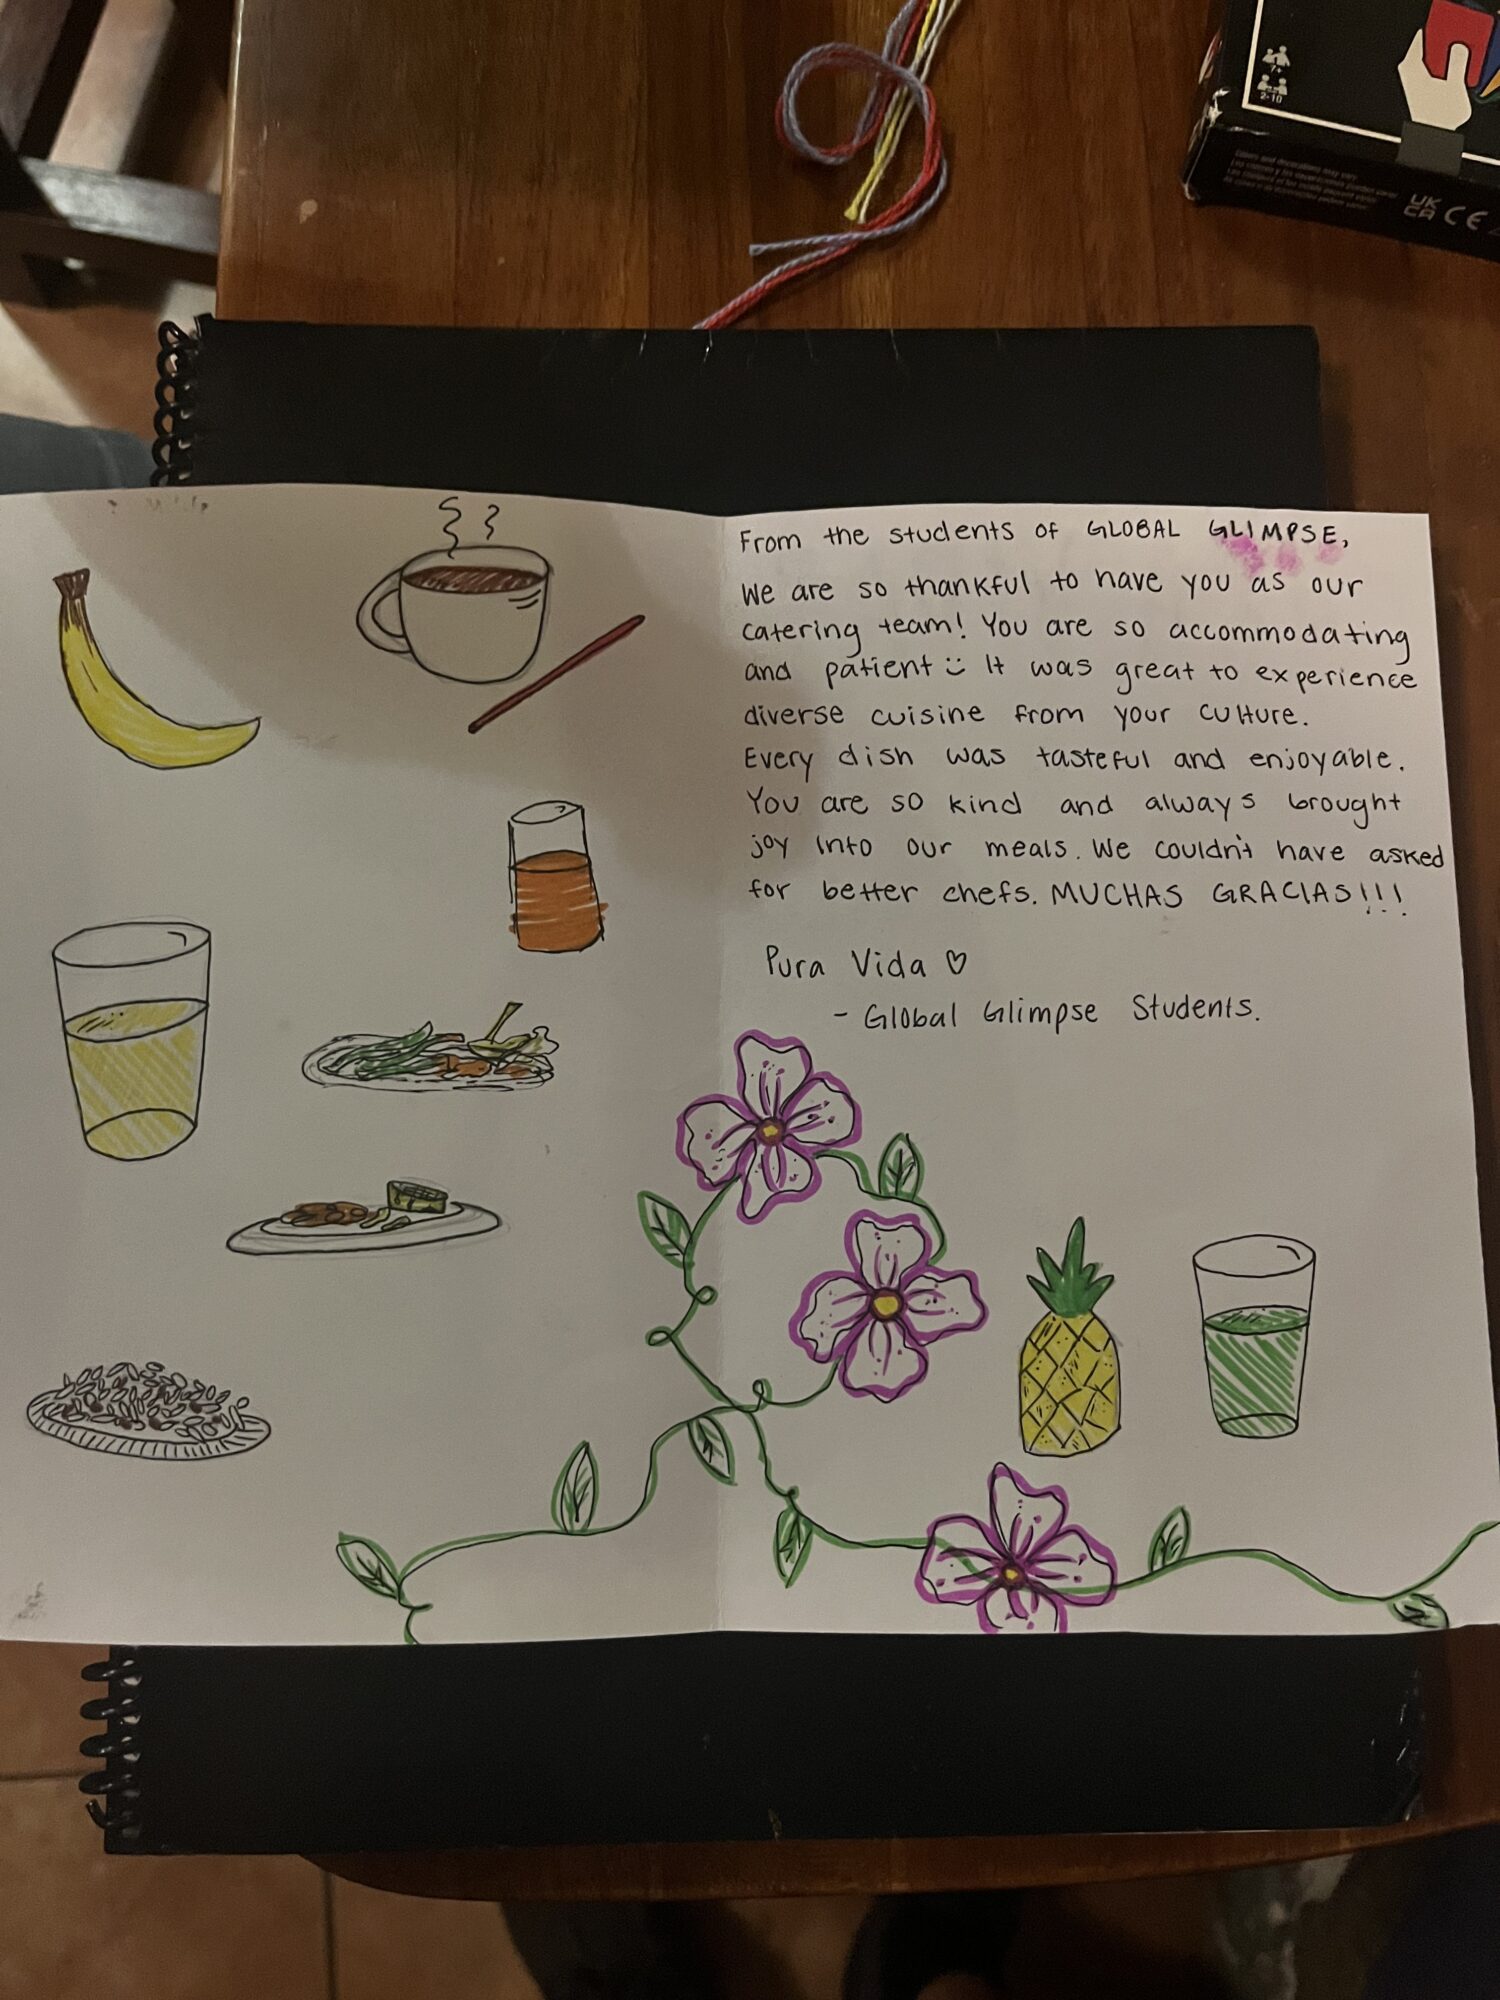 2-10
Colors and decorations may vary.
UK
CA CE
From the students of GLOBAL GLIMPSE,
We are so thankful to have you as our
catering team! You are so accommodating
and patient :) It was great to experience
diverse cuisine from your culture.
Every dish was tasteful and enjoyable.
You are so kind and always brought
joy into our meals. We couldn't have asked
for better chefs. MUCHAS GRACIAS!!!
Pura Vida ♡
- Global Glimpse Students.